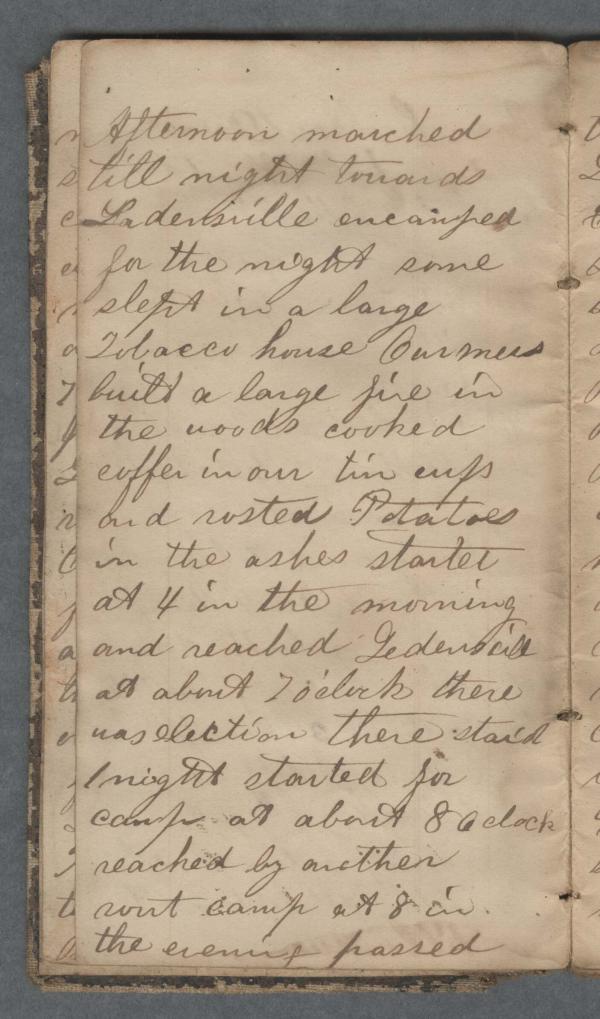 Afternoon marched
till night towards
Ladensville encamped
for the night some
slept in a large
Tobacco house Our mess
built a large fire in
the woods cooked
coffee in our tin cups
and rosted Potatoes
in the ashes startet
at 4 in the morning
and reached Ledensvill
at about 7 oclock there
was election there staid
1 night started for
camp at about 8 Oclock
reached by another
rout camp at 8 in
the evening passed